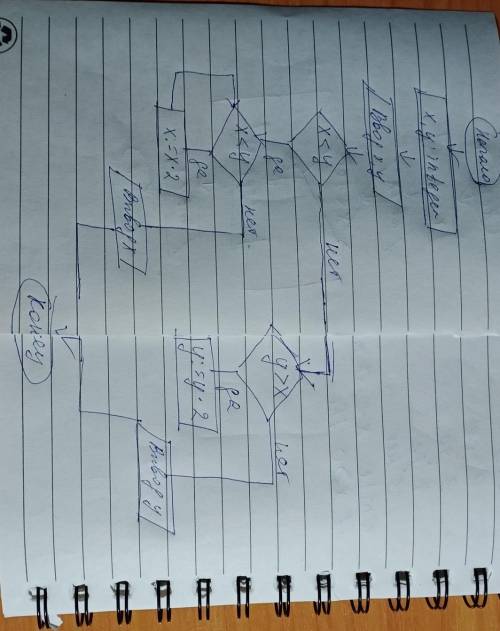 Начало
x, y: integer
Ввод x y
x < y
да
нет
x < y
да
нет
x:=x·2
Вывод x
y > x
да
нет
y:=y·2
Вывод y